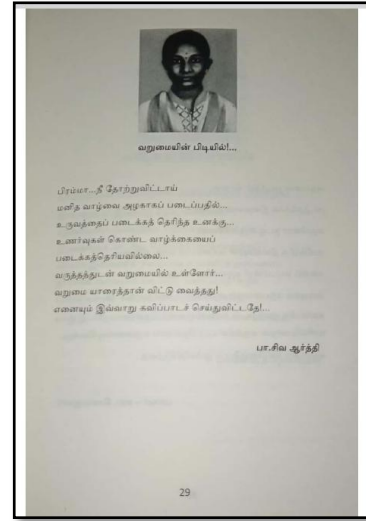 வறுமையின் பிடியில்!...
பிரம்மா...நீ தோற்றுவிட்டாய்
மனித வாழ்வை அழகாகப் படைப்பதில்...
உருவத்தைப் படைக்கத் தெரிந்த உனக்கு...
உணர்வுகள் கொண்ட வாழ்க்கையைப்
படைக்கத்தெரியவில்லை...
வருத்தத்துடன் வறுமையில் உள்ளோர்...
வறுமை யாரைத்தான் விட்டு வைத்தது!
எனையும் இவ்வாறு கவிப்பாடச் செய்துவிட்டதே!...
பா.சிவ ஆர்த்தி
29